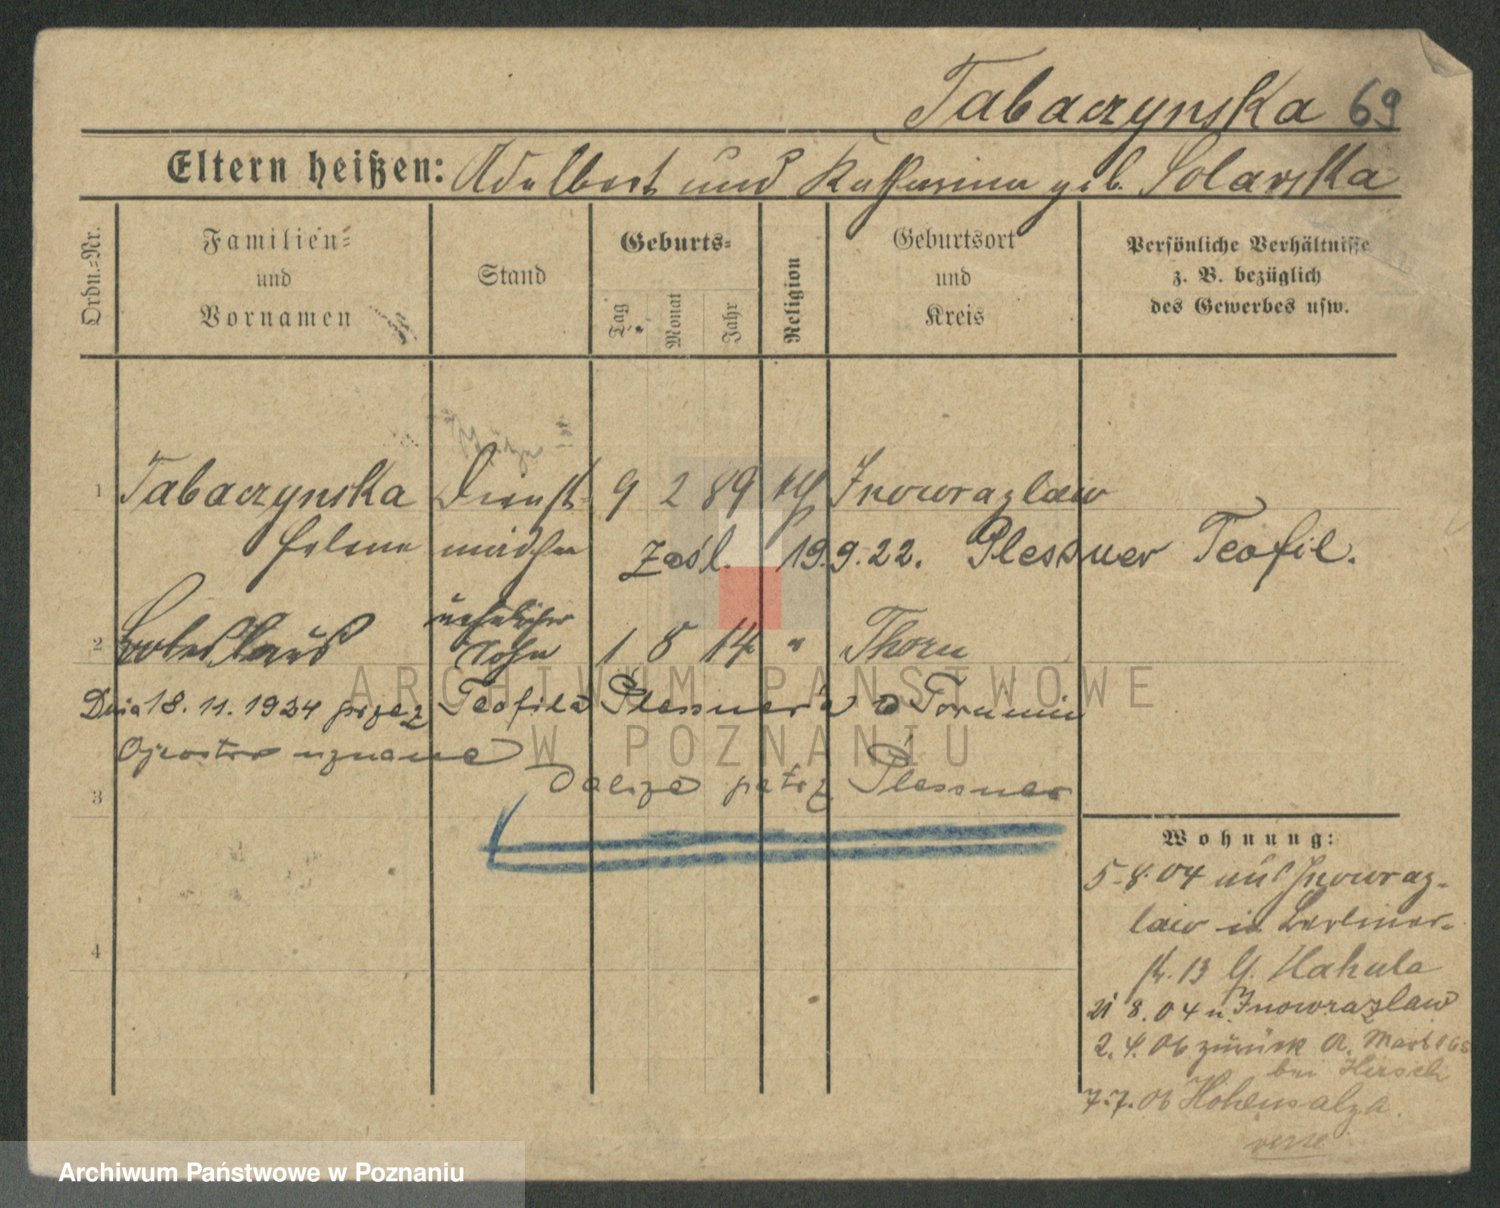 Tabaczynska 69
Eltern heißen: Adalbert und Katharina geb. Solarska
Ordn.-Nr.
Familien-
und
Vornamen
Stand
Geburts-
Tag
Monat
Jahr
Religion
Geburtsort
und
Kreis
Persönliche Verhältnisse
z. B. bezüglich
des Gewerbes usw.
1 Tabaczynska Dienst- 9 2 89 Inowrazlaw
Helene mädchen zaśl. 19.9.22. Plessner Teofil.
unehelicher
2 Boleslaus Sohn 1 8 14 " Thorn
Dnia 18. 11. 1934 przez Teofila Plessner'a w Toruniu
Ojcostwo uznane
Dalsze patrz Plessner
3
4
Wohnung:
5.8.04 aus Inowraz-
law in Berliner-
str. 13 b. Hakula
21 8.04 n. Inowrazlaw
2.4.06 zurück A. Markt
bei Hirsch
7.7.06 Hohensalza.
ARCHIWUM PAŃSTWOWE
W POZNANIU
Archiwum Państwowe w Poznaniu